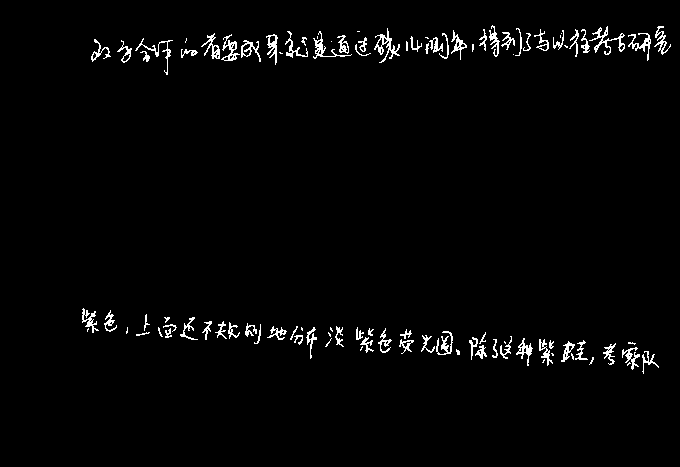 双方合作的首要成果就是通过碳14测年，得到了与以往考古研究
紫色，上面还不规则地分布淡紫色荧光圆。除了这种紫蛙，考察队